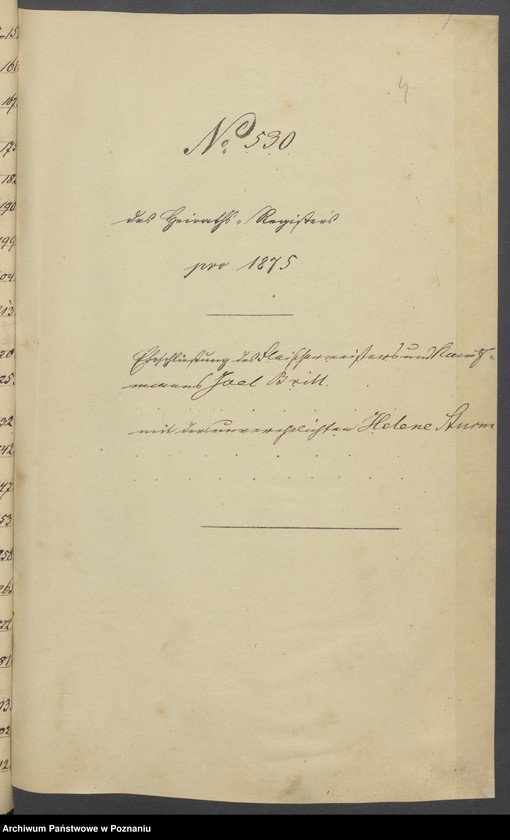 4
No 530
des Heiraths-Registers
pro 1875
Eheschließung des Fleischermeisters und Kauf-
manns Joel Britt
mit der unverehelichten Helene Sturm
Archiwum Państwowe w Poznaniu